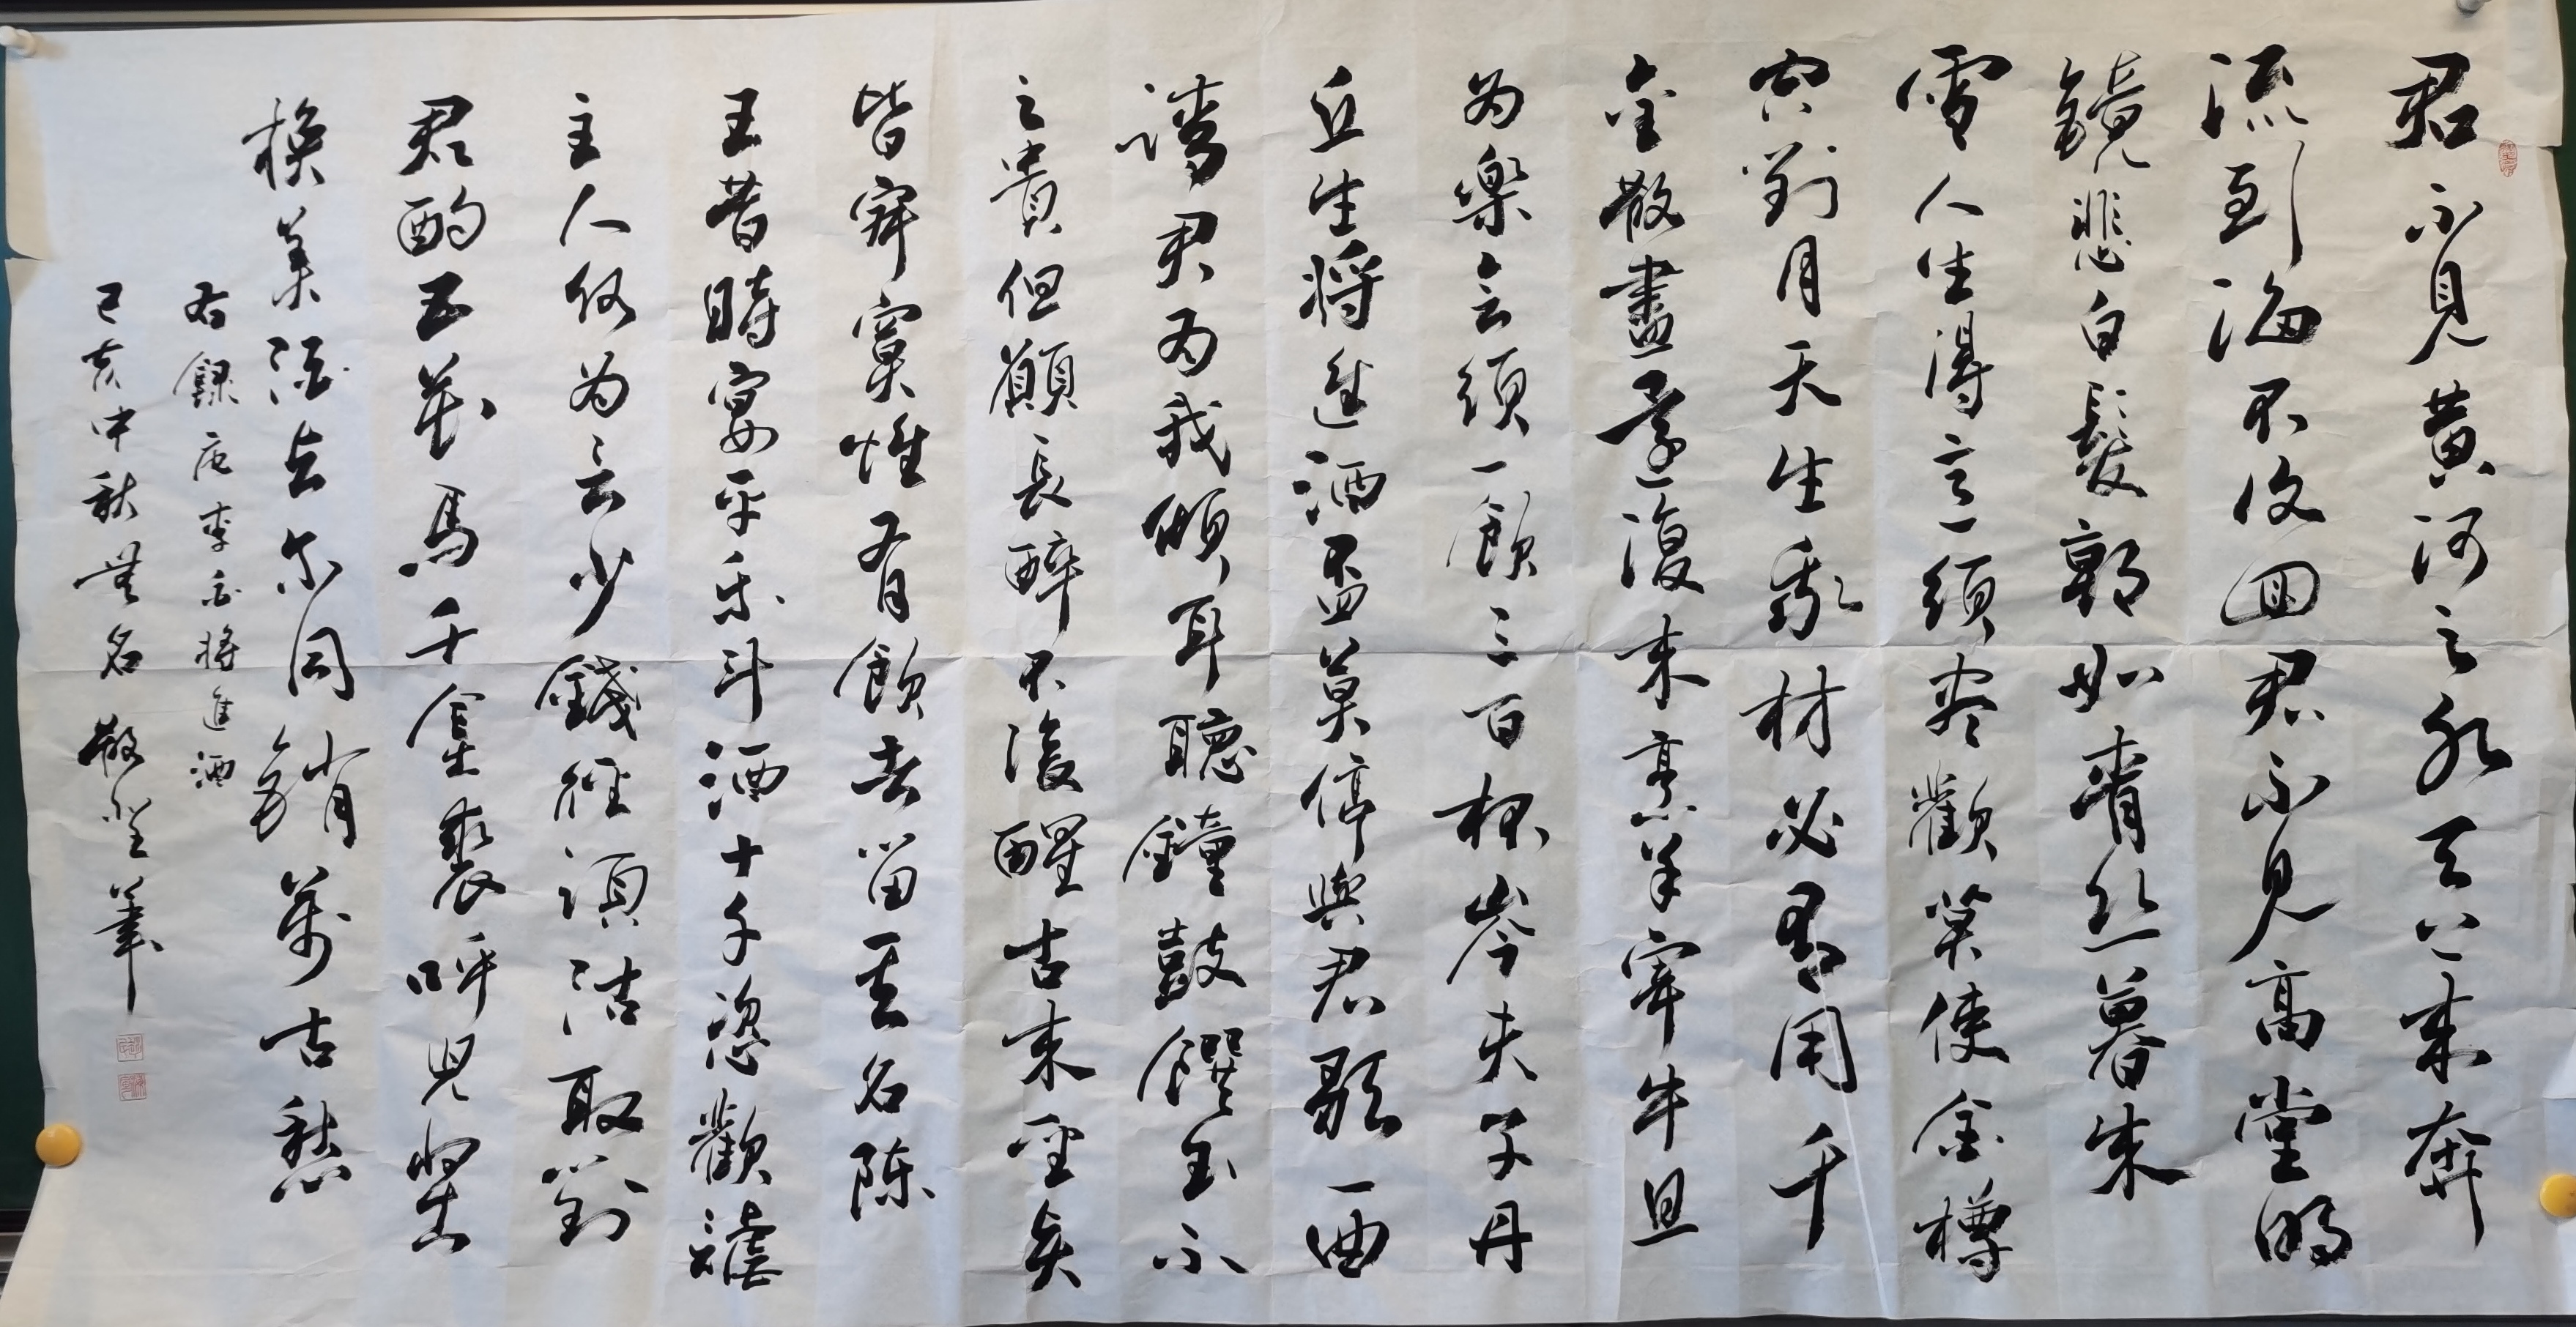 君不見黄河之水天上来奔
流到海不復回君不見高堂明
鏡悲白髮朝如青丝暮成
雪人生得意須尽歡莫使金樽
空對月天生我材必有用千
金散盡還復来烹羊宰牛且
为樂会須一飲三百杯岑夫子丹
丘生将進酒盃莫停與君歌一曲
請君为我傾耳聽鐘鼓饌玉不
足貴但願長醉不復醒古来聖賢
皆寂寞惟有飲者留其名陳
王昔時宴平乐斗酒十千恣歡謔
主人何为言少錢徑須沽取對
君酌五花馬千金裘呼児将出
换美酒与尔同銷萬古愁
右録唐李白将進酒
己亥中秋無名 敬堂筆